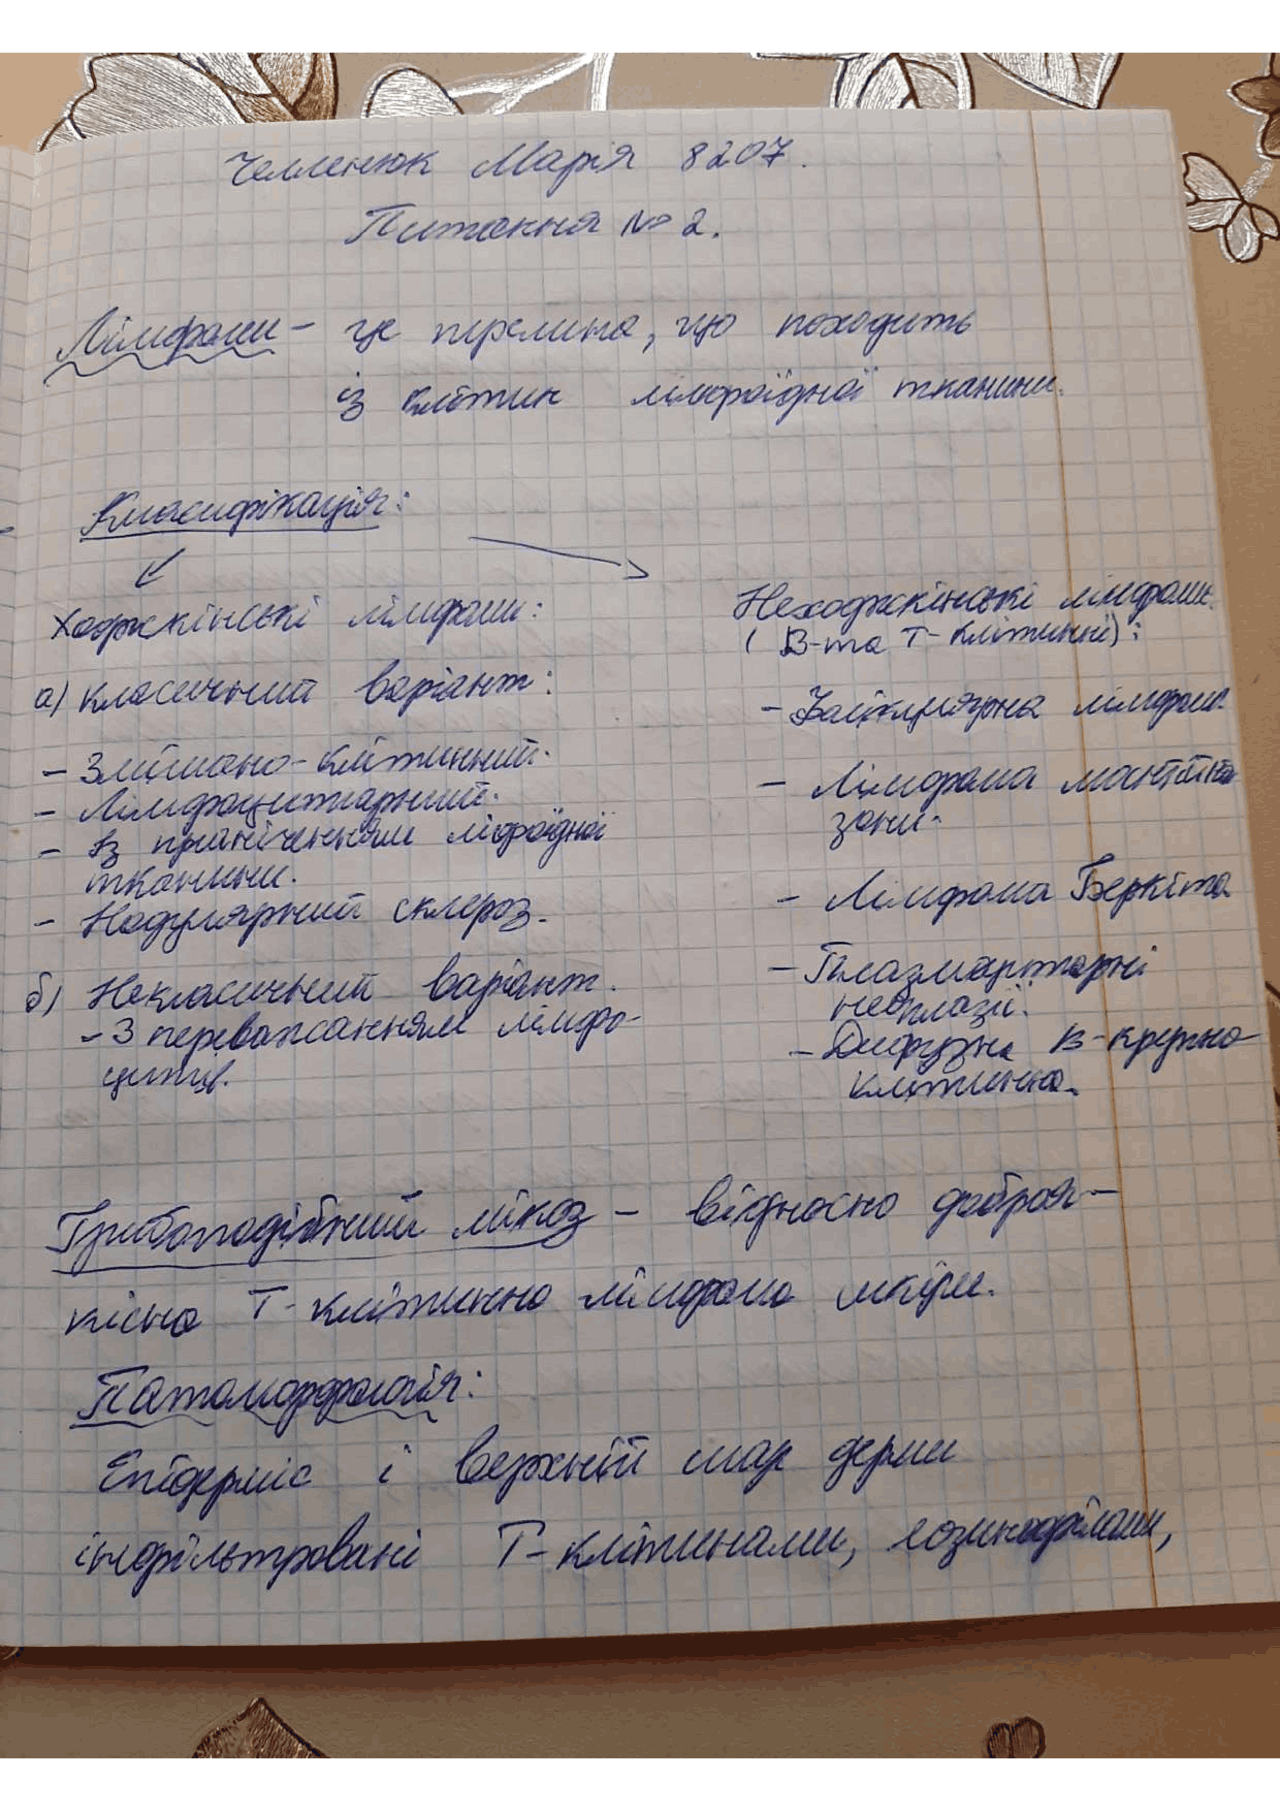 Челленюк Марія 8207.
Питання № 2.
Лімфоми - це пухлина, що походить
із клітин лімфоїдної тканини.
Класифікація:
Ходжкінські лімфоми:
а) класичний варіант:
- Змішано-клітинний.
- Лімфоцитарний.
- Із пригніченням лімфоїдної
тканини.
- Нодулярний склероз.
б) Некласичний варіант.
- З переважанням лімфо-
цитів.
Неходжкінські лімфоми
(В-та Т-клітинні):
- Фолікулярна лімфома
- Лімфома мантійна
зони.
- Лімфома Беркіта
- Плазмацитарні
неоплазії.
- Дифузна В-крупно-
клітинна.
Грибоподібний мікоз - відносно доброя-
кісна Т-клітинна лімфома шкіри.
Патоморфологія:
Епідерміс і верхній шар дерми
інфільтровані Т-клітинами, еозинофілами,